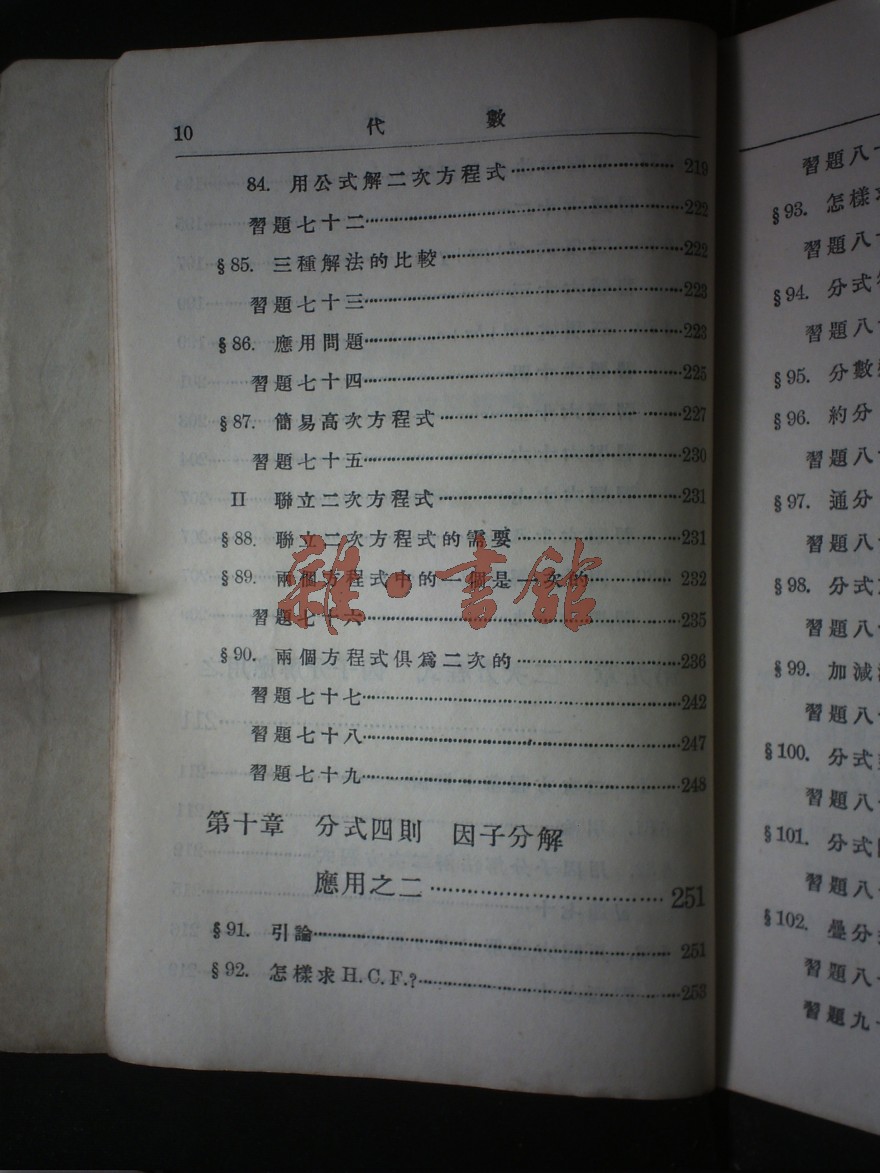 10 代數
84. 用公式解二次方程式 219
習題七十二 222
§85. 三種解法的比較 222
習題七十三 223
§86. 應用問題 223
習題七十四 225
§87. 簡易高次方程式 227
習題七十五 230
II 聯立二次方程式 231
§88. 聯立二次方程式的需要 231
§89. 兩個方程式中的一個是一次的 232
習題七十六 235
§90. 兩個方程式俱爲二次的 236
習題七十七 242
習題七十八 247
習題七十九 248
第十章 分式四則 因子分解
應用之二 251
§91. 引論 251
§92. 怎樣求H.C.F.? 253
雜·書館
習題八
§93. 怎樣
習題八
§94. 分式
習題八
§95. 分數
§96. 約分
習題八
§97. 通分
習題八
§98. 分式
習題八
§99. 加減
習題八
§100. 分式
習題八
§101. 分式
習題八
§102. 疊分
習題八
習題九